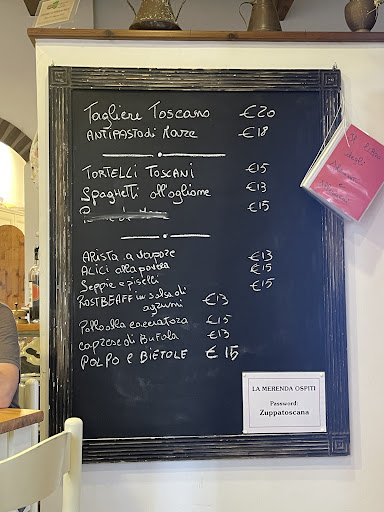 Tagliere Toscano €20
ANTIPASTO di MARE €18
TORTELLI TOSCANI €15
Spaghetti all'oglione €13
€15
ARISTA a vapore €13
ALICI alla povera €15
Seppie e piselli €15
ROSTBEAFF in salsa di agrumi €13
Pollo alla cacciatora €15
Caprese di Bufala €13
POLPO e BIETOLE €15
LA MERENDA OSPITI
Password:
Zuppatoscana
Il libro
degli